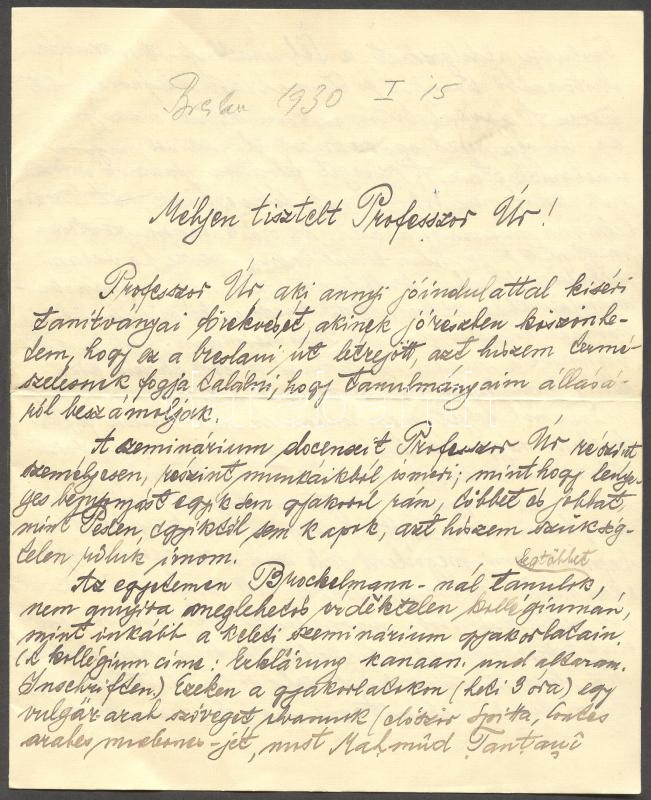 Breslau 1930 I 15
Mélyen tisztelt Professzor Úr!
Professzor Úr, aki annyi jóindulattal kíséri
tanítványai törekvését, akinek jórészben köszönhe-
tem, hogy ez a breslaui út létrejött, azt hiszem termé-
szetesnek fogja találni, hogy tanulmányaim állásá-
ról beszámoljak.
A szeminárium docenseit Professzor Úr részint
személyesen, részint munkáikból ismeri; mint hogy lénye-
ges benyomást egyik sem gyakorol rám, többet és jobbat,
mint Pesten, egyiktől sem kapok, azt hiszem szükség-
telen róluk írnom.
Az egyetemen Brockelmann-nál tanulok legtöbbet,
nem annyira meglehetős érdektelen kollégiumán,
mint inkább a keleti szeminárium gyakorlatain.
(A kollégium címe: Erklärung kanaan. und altaram.
Inschriften.) Ezeken a gyakorlatokon (heti 3 óra) egy
vulgár arab szöveget olvasunk (először Spitta, Contes
arabes modernes-jét, most Maḥmūd Ṭanṭāwī